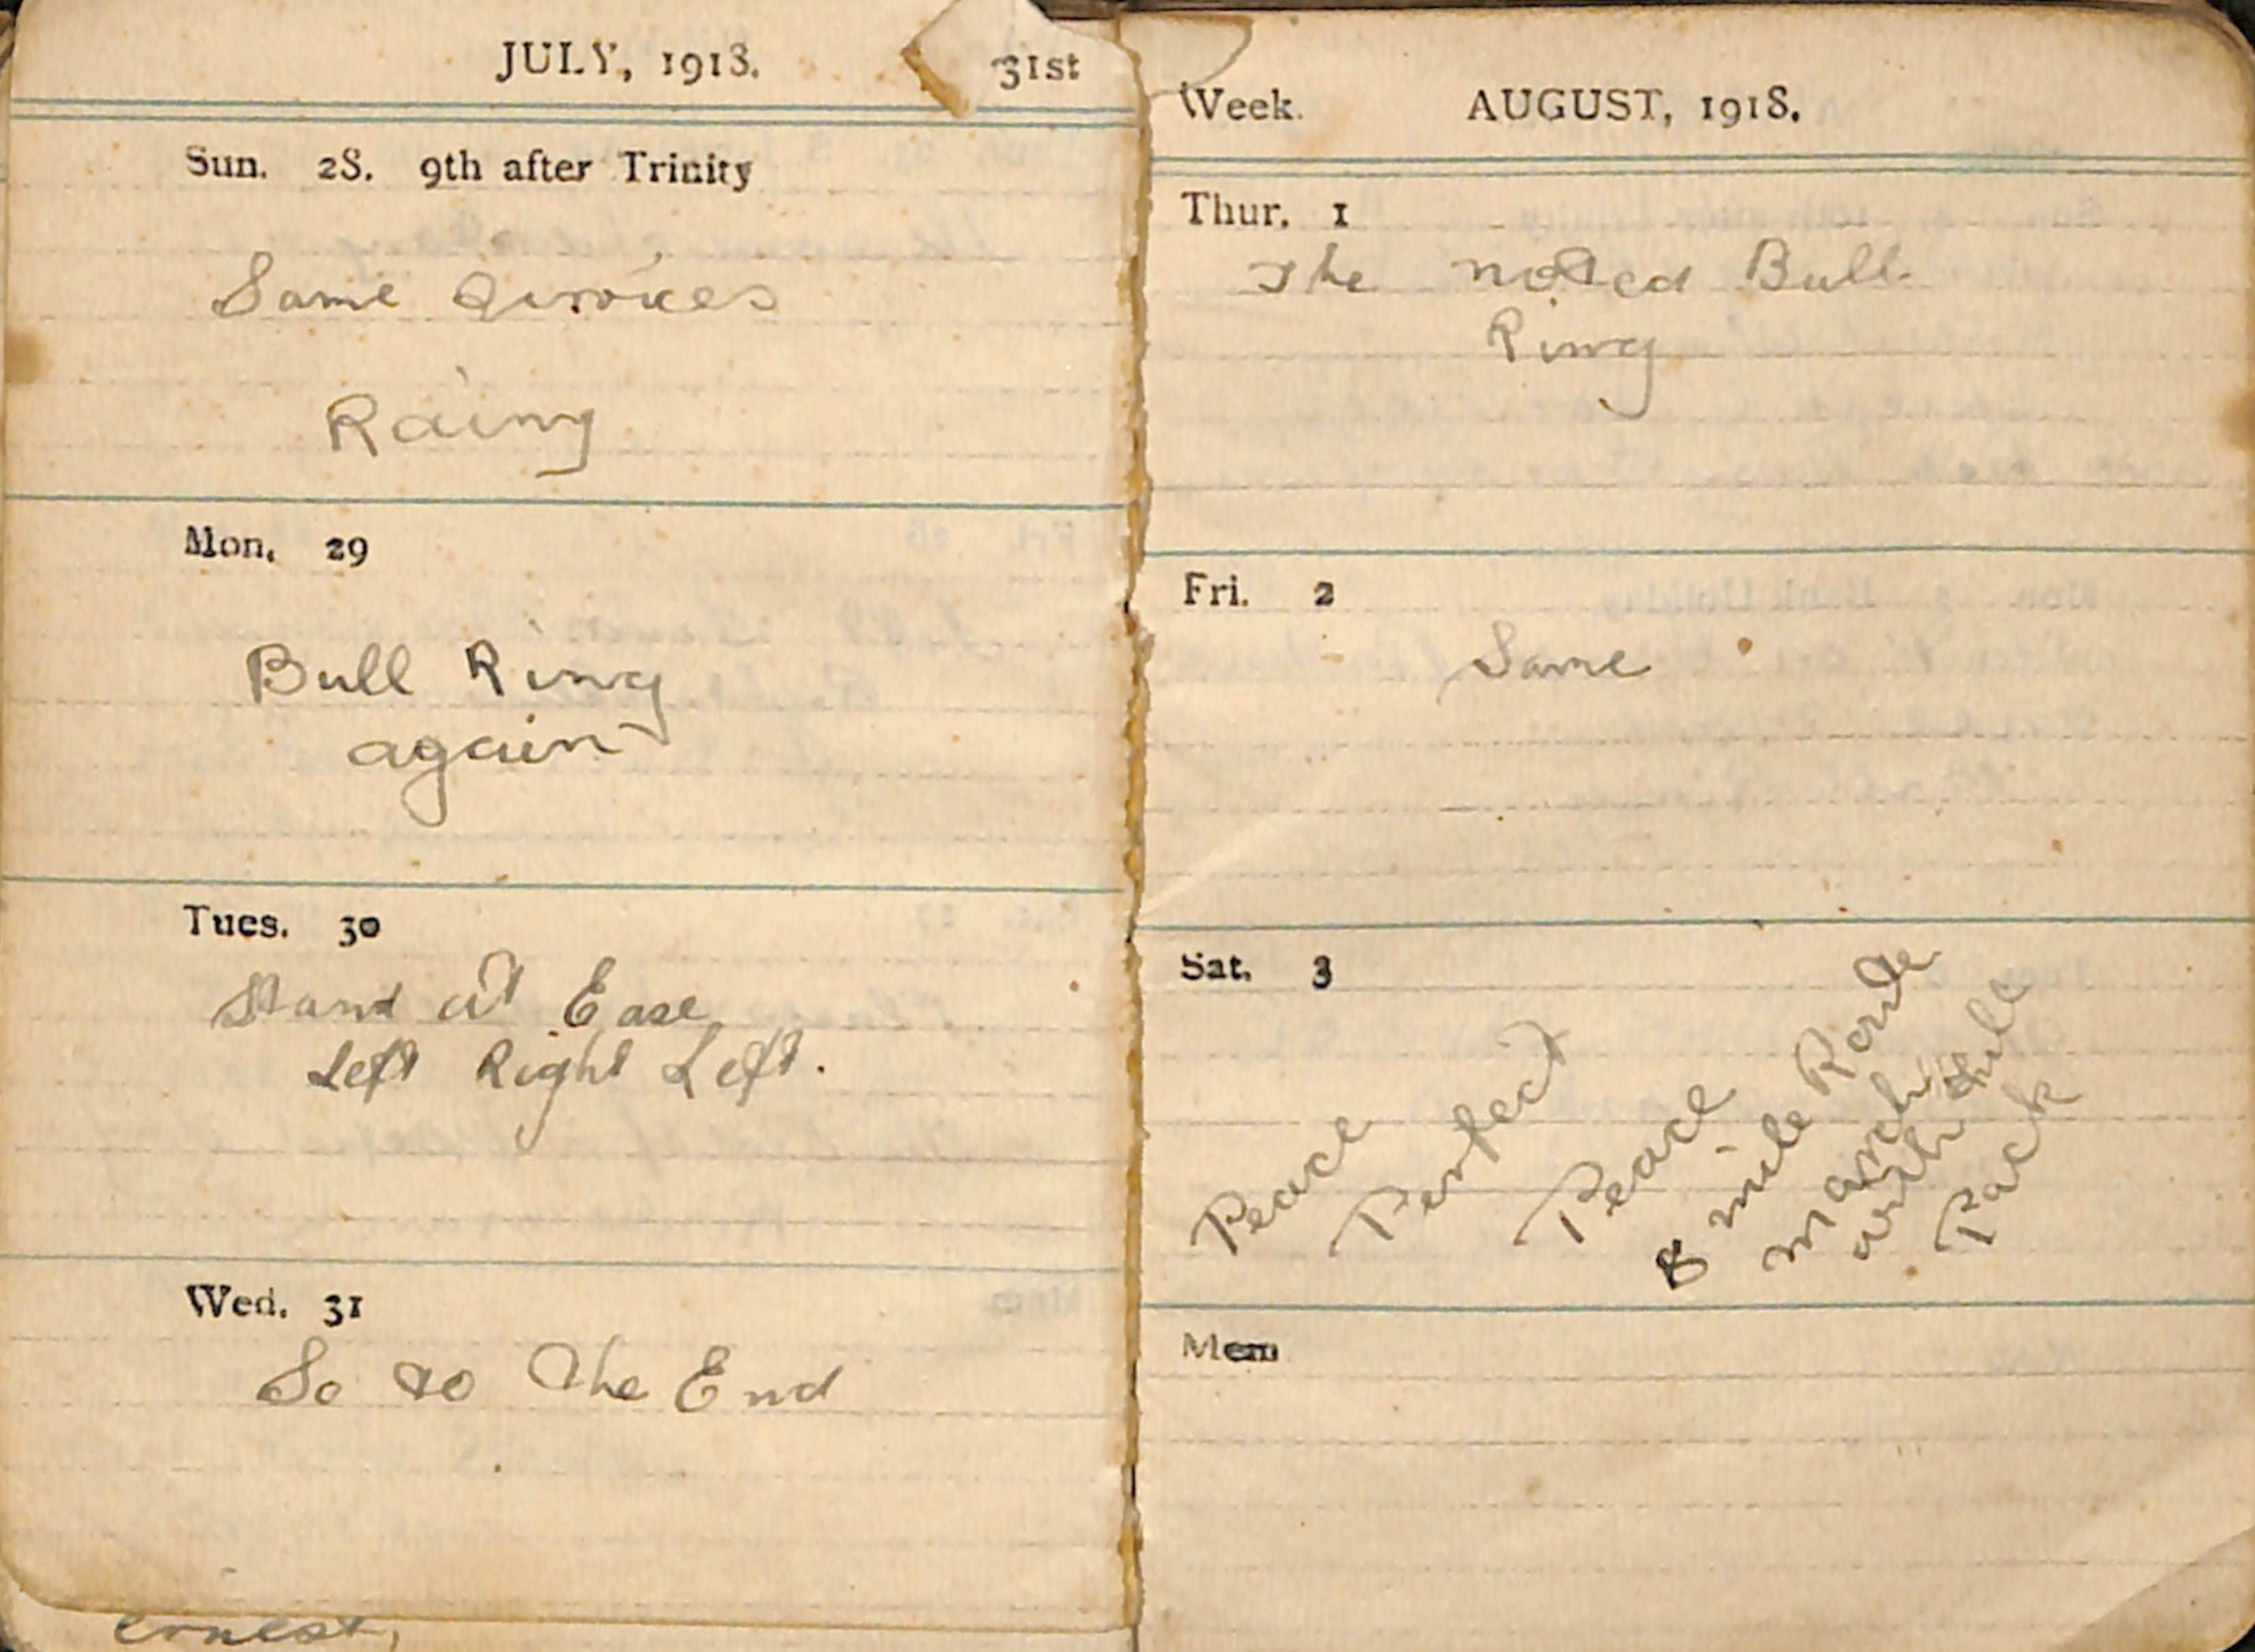 JULY, 1918. 31st
Sun. 28. 9th after Trinity
Same
Raing
Mon. 29
Bull Ring
again
Tues. 30
Stand at Ease
Left Right Left.
Wed. 31
So to the End
ernest,
Week. AUGUST, 1918.
Thur. 1
The noted Bull
Ring
Fri. 2
Same
Sat. 3
Peace
Perfect
Peace
8 mile Route
march
with full
Pack
Mem